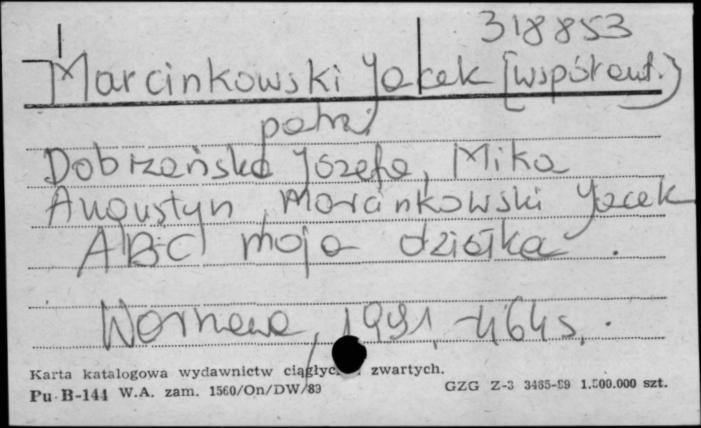 318853
Marcinkowski Jacek (współaut.)
patrz
Dobrzańska Józefa, Mika
Augustyn, Marcinkowski Jacek
ABC moja działka.
Warszawa, 1991, 464 s.
Karta katalogowa wydawnictw zwartych.
Pu-B-144 W.A. zam. 1560/On/DW/89 GZG Z-3 3485-89 1.500.000 szt.